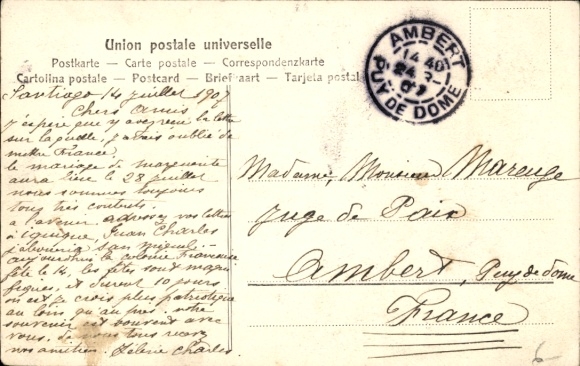 Union postale universelle
Postkarte — Carte postale — Correspondenzkarte
Cartolina postale — Postcard — Briefkaart — Tarjeta postal
AMBERT
14 40
24 8
07
PUY DE DOME
Santiago 14 juillet 1907
Chers Amis
j'espère que vous avez reçu la lettre
sur laquelle j'avais oublié de
mettre France.
le mariage de marguerite
aura lieu le 28 juillet
nous sommes toujours
tous très contents.
a l'avenir adressez vos lettres
à Iquique, Juan Charles
San Miguel.—
aujourdhui la colonie Française
fête le 14, les fêtes sont magni
fiques, et durent 10 jours
on est je crois plus patriotique
au loin qu'au près. votre
souvenir est souvent avec
vous. de nous tous recevez
nos amitiés. Charles
Madame, Monsieur Marenge
Juge de Paix
Ambert, Puy de dome
France